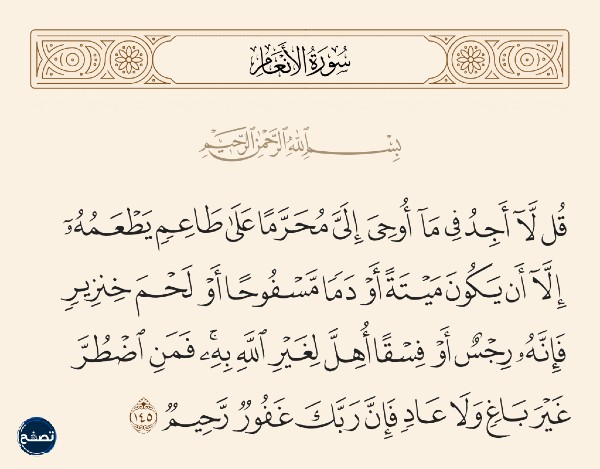 سُورَةُ الأَنْعَامِ
بِسْمِ اللَّهِ الرَّحْمَٰنِ الرَّحِيمِ
قُل لَّآ أَجِدُ فِى مَآ أُوحِىَ إِلَىَّ مُحَرَّمًا عَلَىٰ طَاعِمٍ يَطْعَمُهُۥٓ
إِلَّآ أَن يَكُونَ مَيْتَةً أَوْ دَمًا مَّسْفُوحًا أَوْ لَحْمَ خِنزِيرٍ
فَإِنَّهُۥ رِجْسٌ أَوْ فِسْقًا أُهِلَّ لِغَيْرِ ٱللَّهِ بِهِۦ ۚ فَمَنِ ٱضْطُرَّ
غَيْرَ بَاغٍ وَلَا عَادٍ فَإِنَّ رَبَّكَ غَفُورٌ رَّحِيمٌ ١٤٥
تصفح